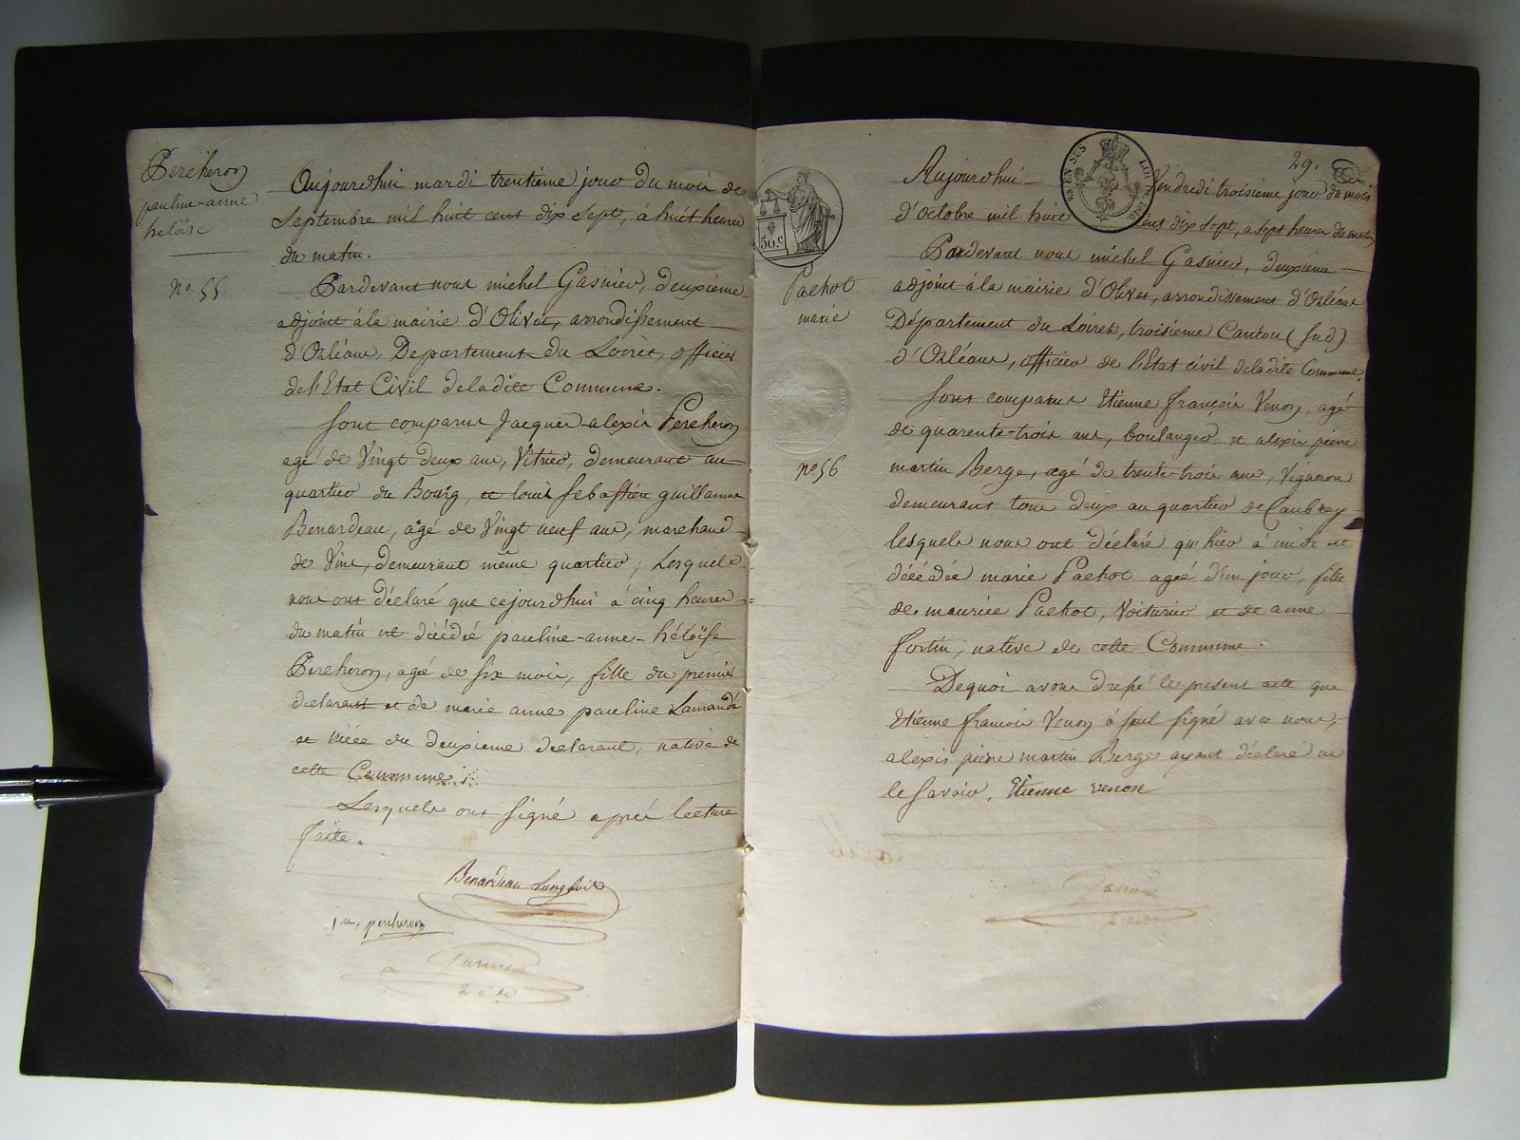 Percheron
pauline-anne
héloïse
n.° 55
Aujourdhui mardi trentieme jour du mois de
Septembre mil huit cent dix Sept, à huit heures
du matin.
Pardevant nous michel Gasnier, deuxieme
adjoint à la mairie d'Olivet, arrondissement
d'Orléans, Departement du Loiret, officier
de l'Etat Civil de ladite Commune.
Sont comparus Jacques-alexis Percheron
agé de Vingt deux ans, Vitrier, demeurant au
quartier du Bourg, et louis Sebastien guillaume
Benardeau, agé de Vingt neuf ans, marchand
de Vins, demeurant même quartier, Lesquels
nous ont déclaré que cejourdhui à cinq heures
du matin est décédé pauline-anne-héloïse
Percheron, agé de six mois, fille du premier
declarant et de marie anne pauline Lamandé
et niéce du deuxieme declarant, native de
cette Commune.
Lesquels ont signé après lecture
faite.
Benardeau Langlois
percheron
Gasnier
29.
Aujourdhui Vendredi troisieme jour du mois
d'octobre mil huit cens dix Sept, a sept heures du matin
50 c
Pachot
marie
n.° 56
Pardevant nous michel Gasnier, deuxieme
adjoint à la mairie d'Olivet, arrondissement d'Orléans
Département du Loiret, troisieme Canton (Sud)
d'Orléans, officier de l'Etat civil de ladite Commune.
Sont comparus Etienne françois Venon, agé
de quarente-trois ans, boulanger et alexis pierre
martin Berge, agé de trente-trois ans, Vigneron
demeurant tous deux au quartier de Caubray
lesquels nous ont déclaré qu'hier à midi est
décédée marie Pachot ageé d'un jour, fille
de maurice Pachot, Voiturier et de anne
fortin, native de cette Commune.
Dequoi avons dressé le present acte que
Etienne francois Venon à seul signé avec nous,
alexis pierre martin Berge ayant déclaré ne
le Savoir. Etienne venon
Gasnier